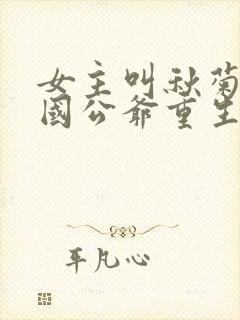 女主叫秋菊
國公爺重生
平凡心